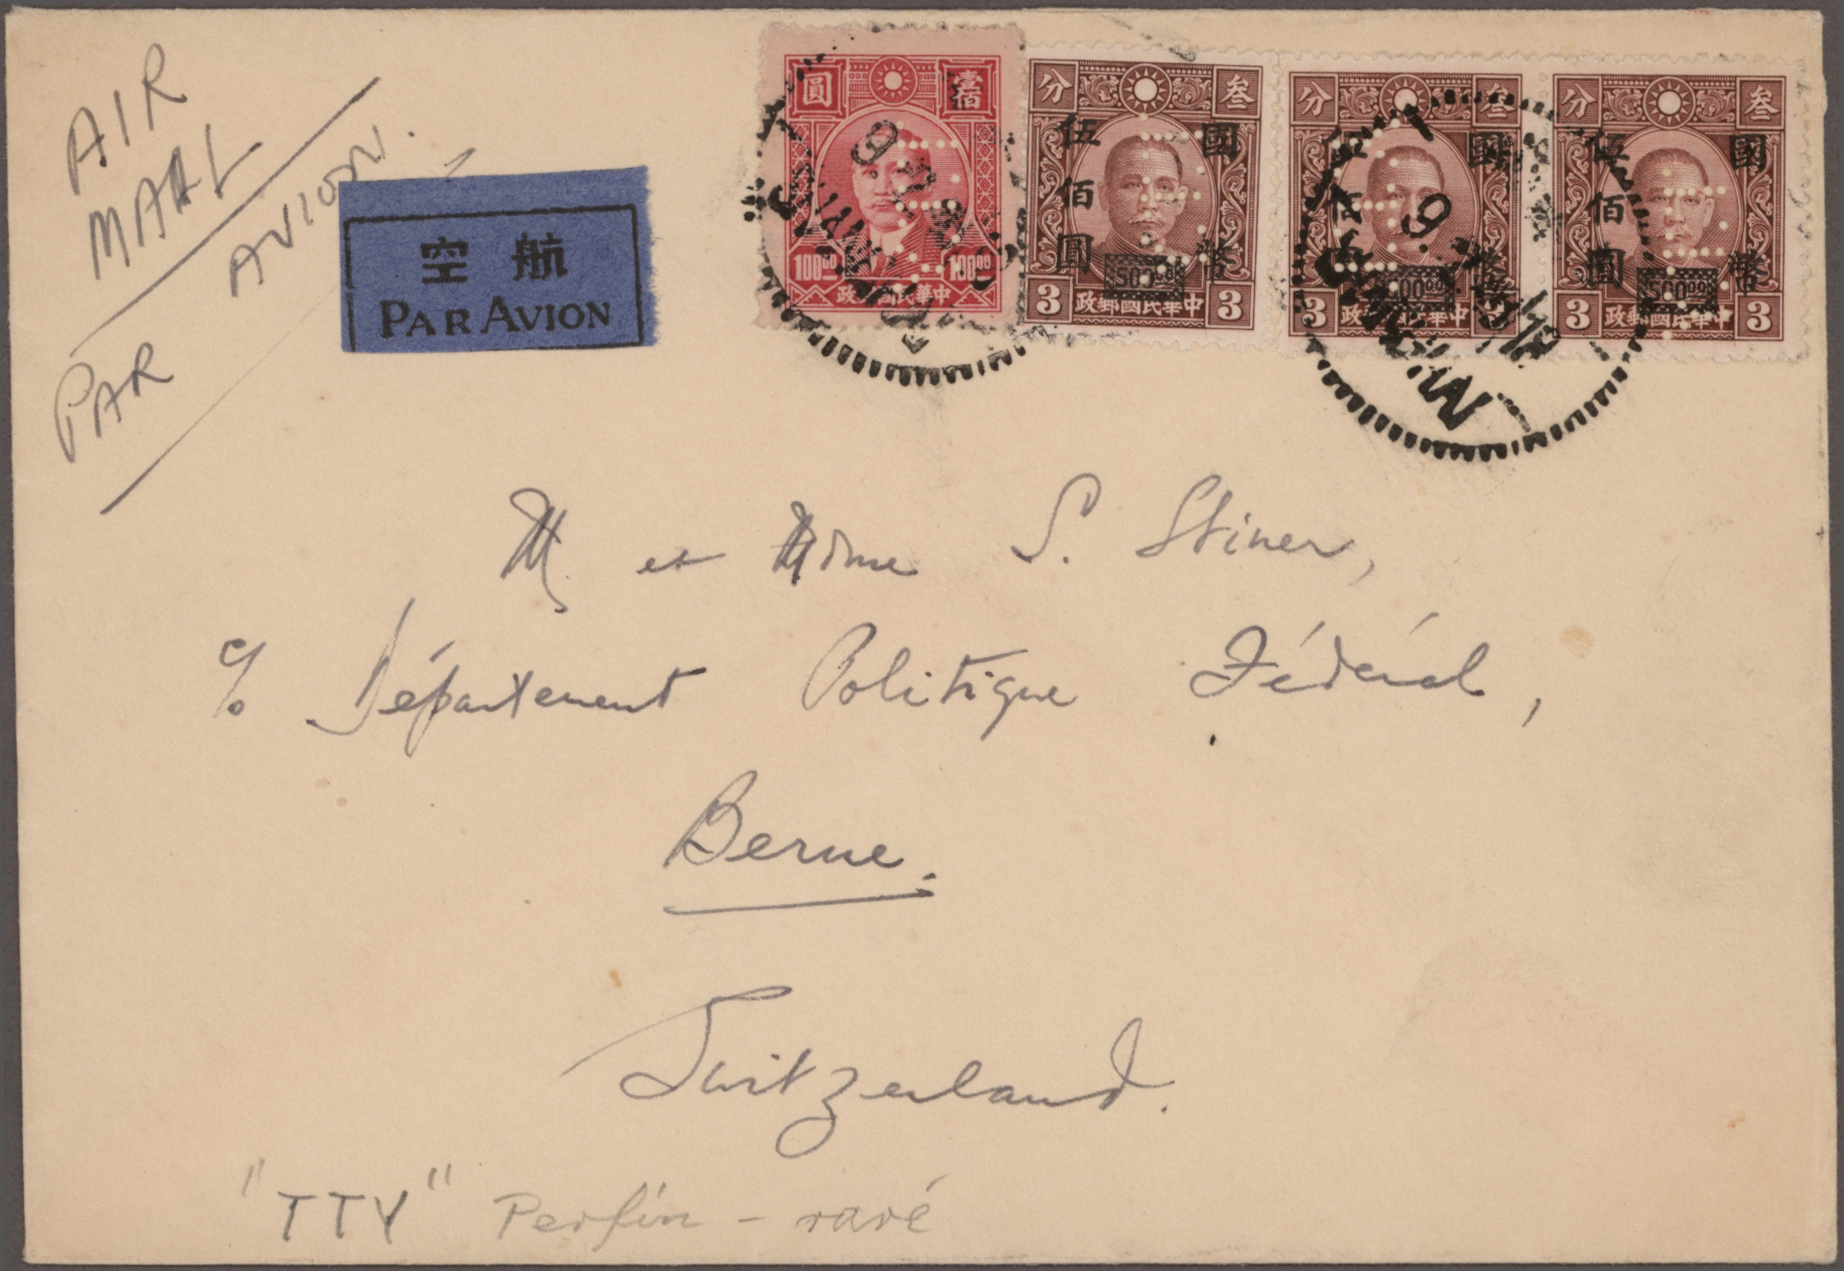 AIR
MAIL
PAR AVION.
航空
PAR AVION
圓 壹佰
100.00 100.00
中華民國郵政
分 叁
國幣
伍佰圓
500.00
3 中華民國郵政 3
分 叁
國幣
500.00
3 中華民國郵政 3
分 叁
國幣
伍佰圓
500.00
3 中華民國郵政 3
SHANGHAI
SHANGHAI
M. et Mdme S. Stiner,
c/o Département Politique Fédéral,
Berne.
Switzerland.
"TTY" Perfin - rare